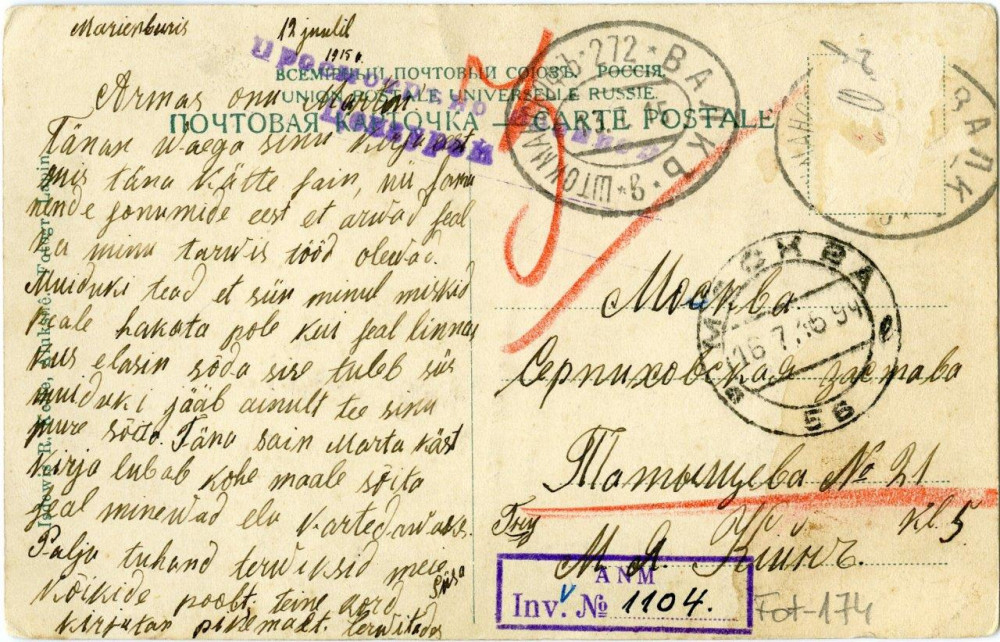 Marienburis 12 juulil
1915 a.
Просмотрено
ВСЕМІРНЫЙ ПОЧТОВЫЙ СОЮЗЪ. РОССІЯ.
UNION POSTALE UNIVERSELLE RUSSIE.
ПОЧТОВАЯ КАРТОЧКА — CARTE POSTALE
Armas onu Martin
Tänan waega sinu kirja eest
mis täna kätte sain, nii sama
nende sonumide eest et arwad seal
ka minu tarwis tööd olewad.
Muiduki tead et siin minul miskid
peale hakata pole kui seal linnas
kus elasin sõda sise tuleb siis
muiduki jääb ainult tee sinu
juure sõita. Täna sain Marta käst
kirja lubab kohe maale sõita
seal minewad elu
Palju tuhand terwiksid meie
kõikide poolt, teine kord
kirjutan pikemalt. terwitades
Fotogr. Latvin
272 * ВАЛКЪ * в. ШТОКМА
ВАЛК
3
Москва
Серпиховская застава
Татищева № 21
кв. 5
М. Я. Клинъ.
МОСКВА
16.7.15
ANM
Inv. № 1104.
Fot-174